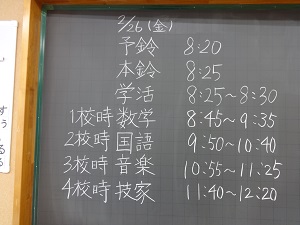 2/26(金)
予鈴 8:20
本鈴 8:25
学活 8:25～8:30
1校時 数学 8:45～9:35
2校時 国語 9:50～10:40
3校時 音楽 10:55～11:25
4校時 技家 11:40～12:20